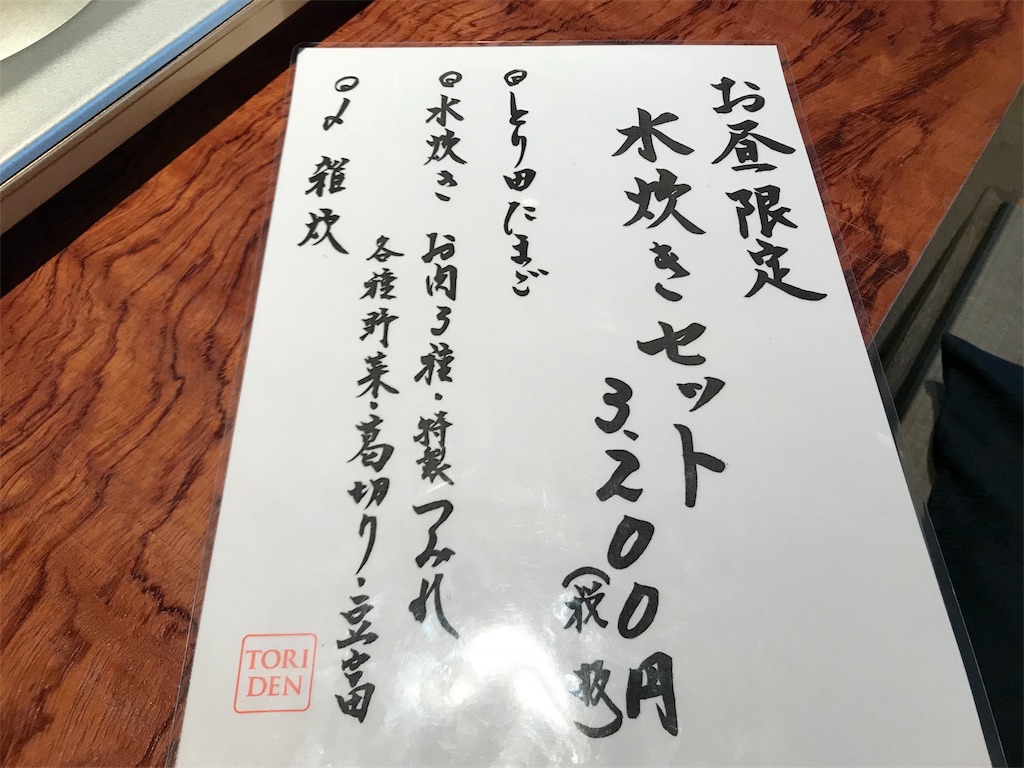 お昼限定
水炊きセット
3,200円
(税
◎とり田たまご
◎水炊き お肉3種・特製つみれ
各種野菜・葛切り・豆富
◎〆 雑炊
TORI
DEN